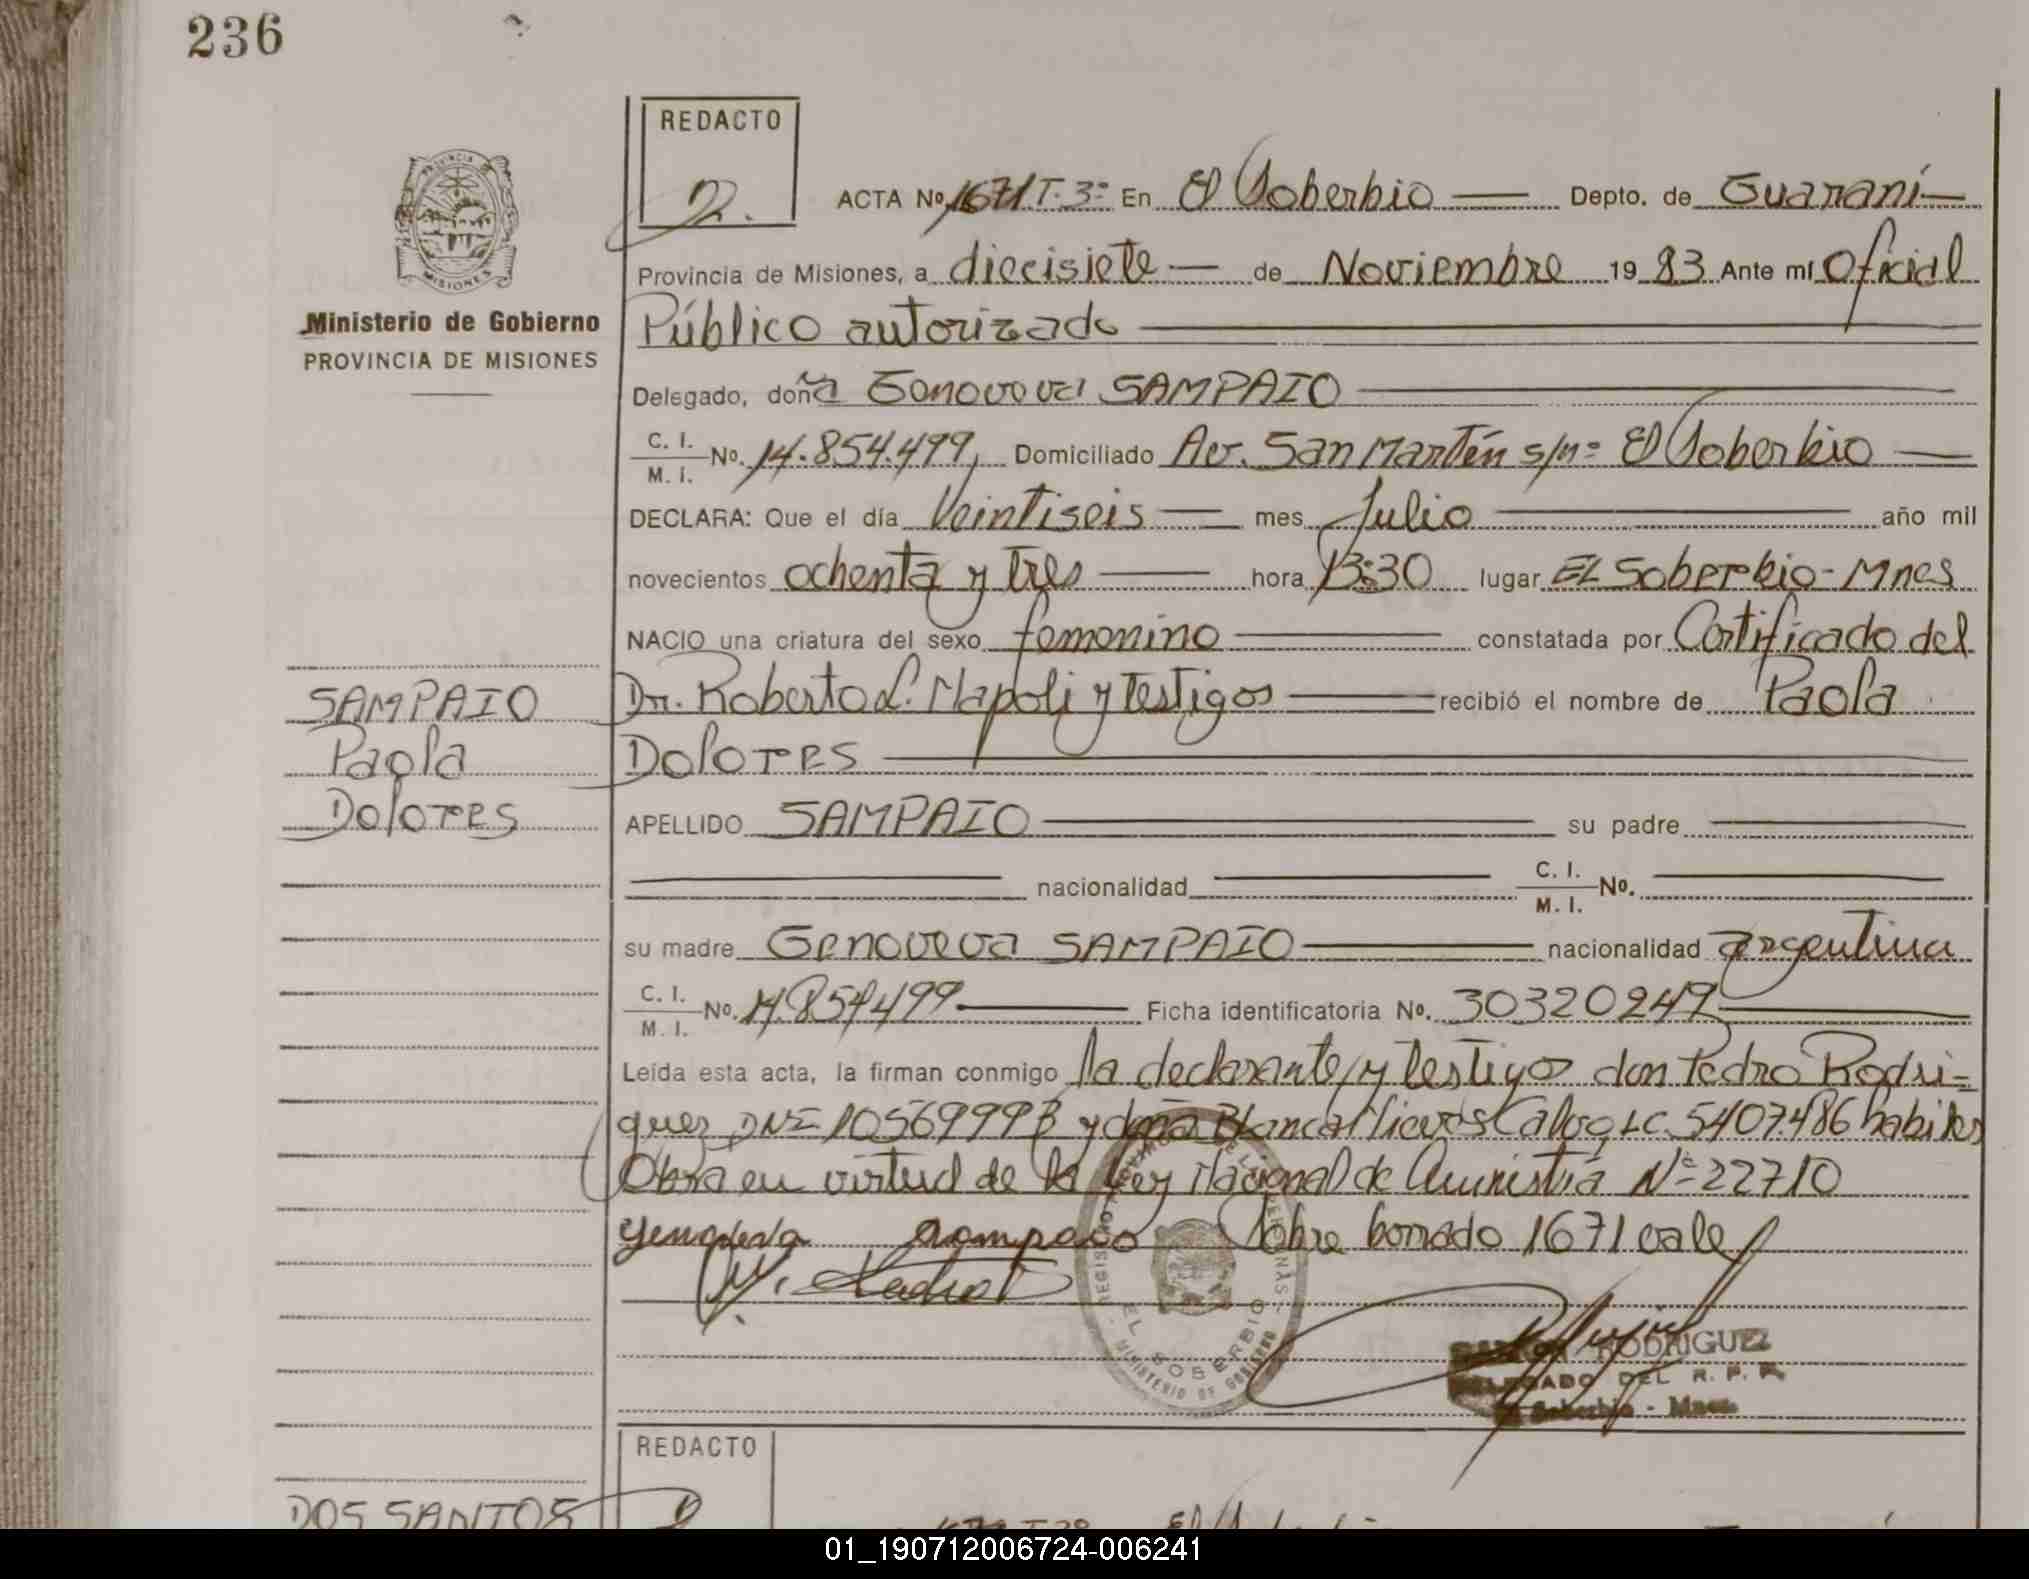 236
REDACTO
2.
ACTA Nº 1671 T. 3º En El Soberbio Depto. de Guaraní
Provincia de Misiones, a diecisiete de Noviembre 1983 Ante mí Oficial
Ministerio de Gobierno
PROVINCIA DE MISIONES
Público autorizado
Delegado, doña Genoveva SAMPAIO
C. I.
M. I.
Nº. 14.854.499, Domiciliado Av. San Martín s/nº El Soberbio
DECLARA: Que el día Veintiseis mes Julio año mil
novecientos ochenta y tres hora 13:30 lugar EL Soberbio - Mnes
NACIO una criatura del sexo femenino constatada por Certificado del
SAMPAIO
Paola
Dolores
Dr. Roberto L. Napoli y testigos recibió el nombre de Paola
Dolores
APELLIDO SAMPAIO su padre
nacionalidad C. I.
M. I. Nº.
su madre Genoveva SAMPAIO nacionalidad argentina
C. I.
M. I.
Nº. 14.854499 Ficha identificatoria Nº. 30320249
Leída esta acta, la firman conmigo la declarante y testigos don Pedro Rodri-
guez DNI 10569998 y doña Blanca Nieves Calvo, LC. 5407486 habiles
Obra en virtud de la Ley Nacional de Amnistía Nº 22710
genoveva sampaio Sobre borrado 1671 vale
REGISTRO
EL SOBERBIO
MINISTERIO DE GOBIERNO
RODRIGUEZ
DELEGADO DEL R. P. P.
El Soberbio - Mnes.
REDACTO
DOS SANTOS
01_190712006724-006241